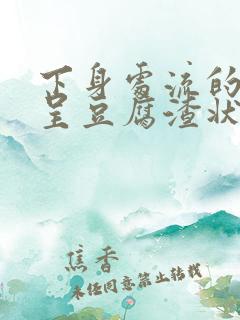 下身需流的
呈豆腐渣状
焦香
未经同意禁止转载